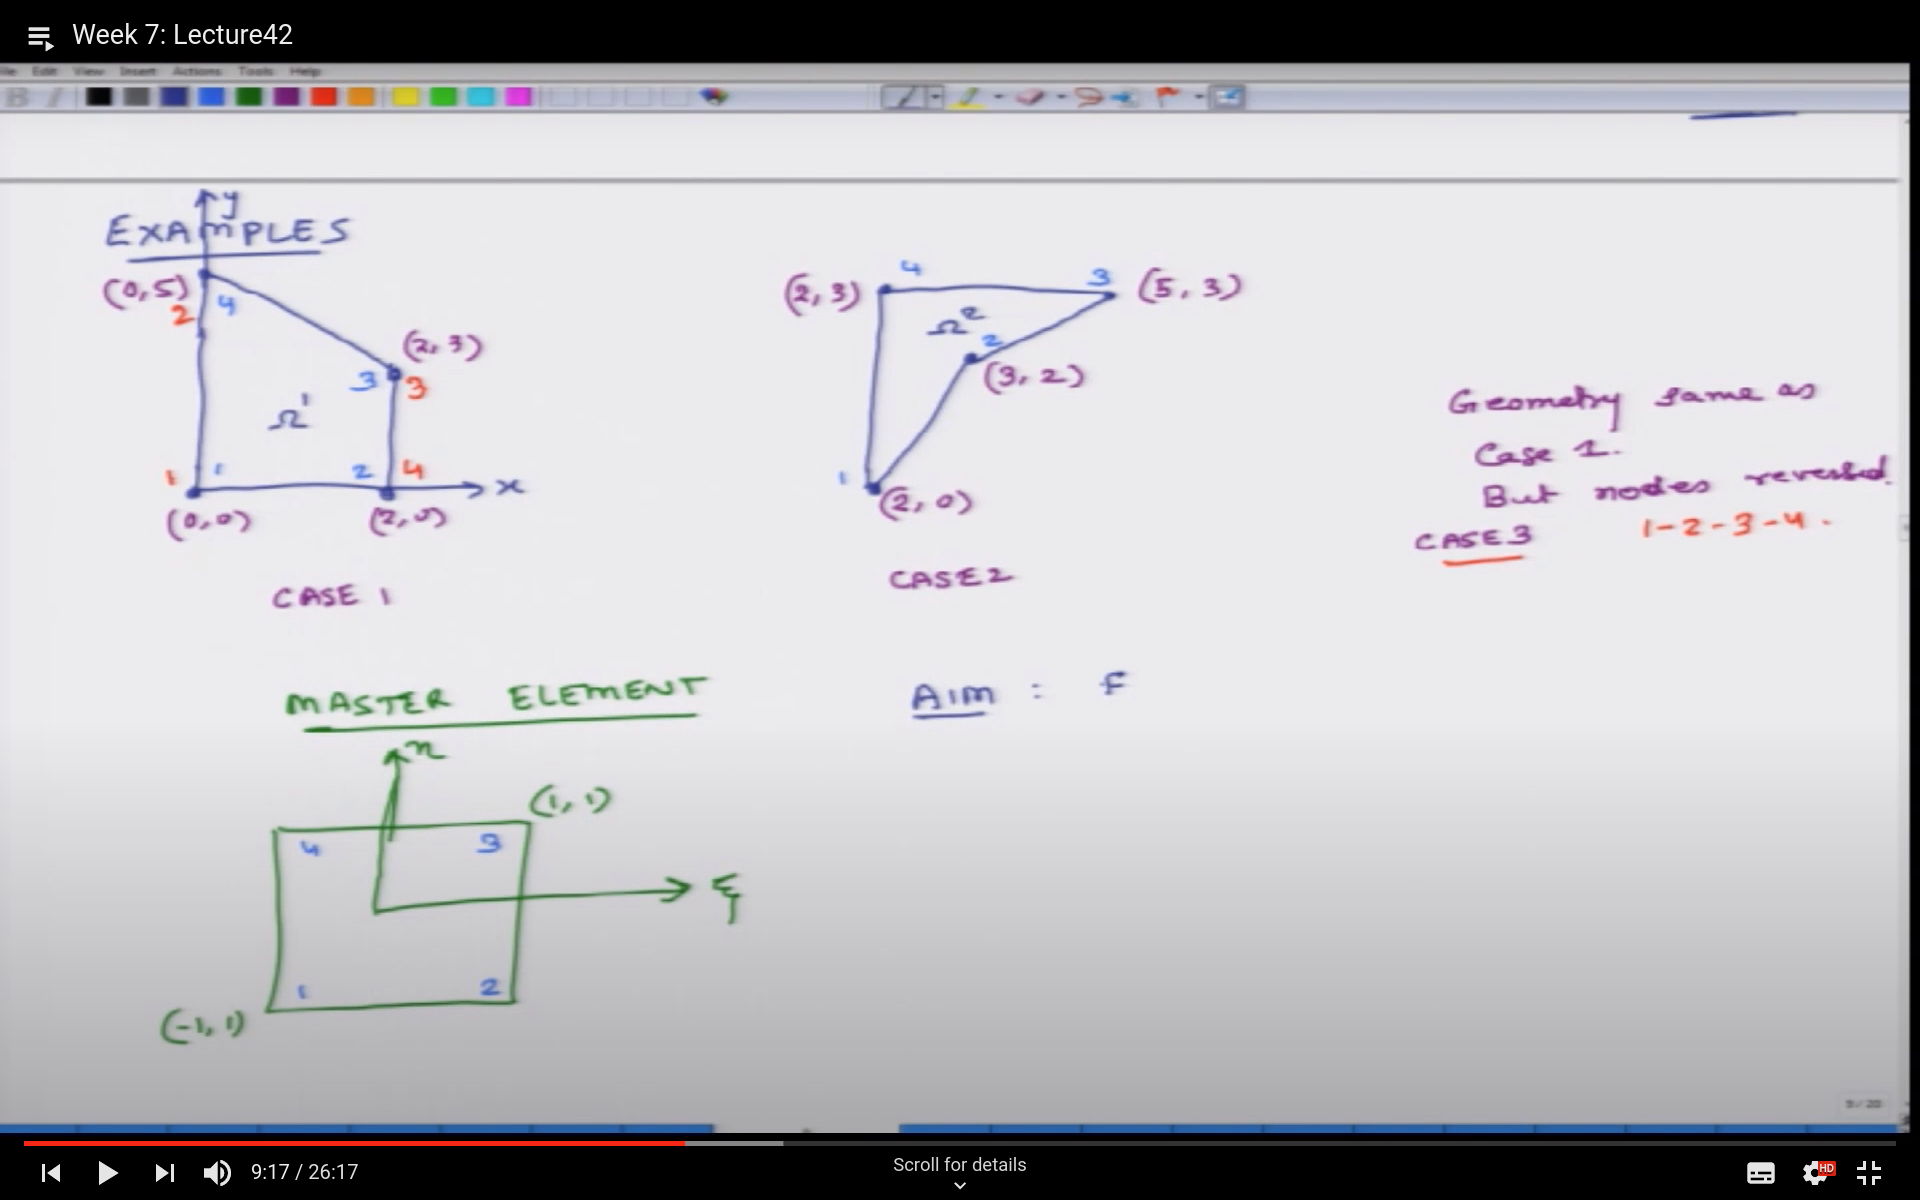 Week 7: Lecture42
File Edit View Insert Actions Tools Help
B I
EXAMPLES
y
(0,5)
2 4
(2,3)
3 3
Ω¹
1 1 2 4
x
(0,0) (2,0)
CASE 1
(2,3) 4 3 (5,3)
Ωe
2
(3,2)
1
(2,0)
CASE2
Geometry same as
Case 1.
But nodes reversed.
CASE3 1-2-3-4.
MASTER ELEMENT
η
(1,1)
4 3
ξ
1 2
(-1,1)
AIM : F
9 / 20
9:17 / 26:17
Scroll for details
HD